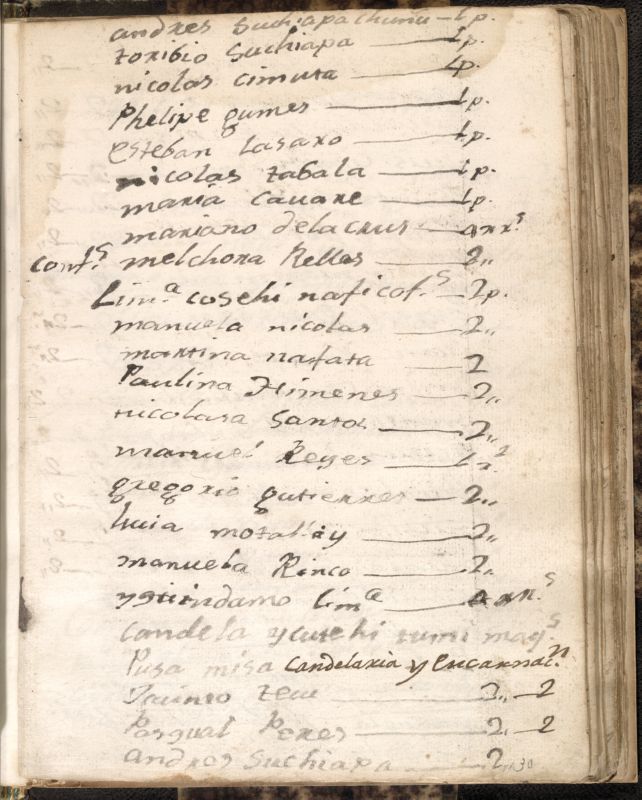 andres Suchiapa chunu — 1 p.
toribio Suchiapa — 1 p.
nicolas cimuta — 1 p.
Phelipe gumes — 1 p.
esteban Lasaro — 1 p.
nicolas tabala — 1 p.
maria cauare — 1 p.
mariano delacrus — 4 rr.s
conf.s melchora Relles — 2,,
Lim.a cosehi naticof.s — 2 p.
manuela nicolas — 2,,
martina nafata — 2
Paulina Himenes — 2,,
nicolasa Santos — 2,,
manuel Reyes — 1 r.
gregorio gutierres — 2,,
luia — 2,,
manuela Rinco — 2,,
lim.a — 4 rr.s
Candela y cutehi tumi may.s
Pusa misa Candelaria y encarnac.n
Teue — 2,, — 2
Pasqual Peres — 2. — 2
andres Suchiapa — 2